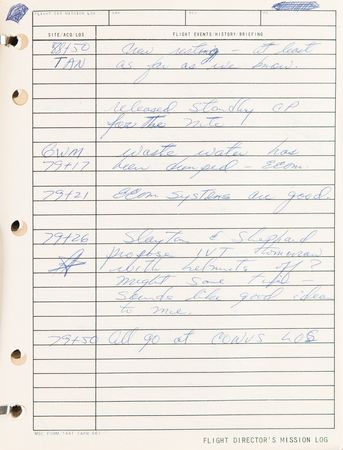 FLIGHT DAY MISSION LOG DAY
SITE/ACQ/LOS FLIGHT EVENTS/HISTORY/BRIEFING
78+50 Crew resting - at least
TAN as far as we know.
released Standby CP
for the nite
GWM waste water has
79+17 been dumped - EECOM
79+21 EECOM Systems are good.
79+26 Slayton & Sheppard
propose IVT tomorrow
with helmets off?
might save time -
sounds like good idea
to me.
79+50 All go at CONUS LOS
MSC FORM
FLIGHT DIRECTOR'S MISSION LOG